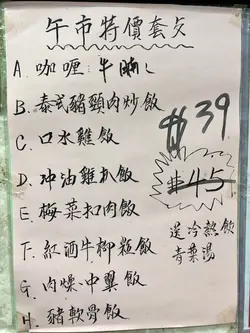 午市特價套歺
A. 咖喱牛腩
B. 泰式豬頸肉炒飯
C. 口水雞飯
D. 沖油雞扒飯
E. 梅菜扣肉飯
F. 紅酒牛柳粒飯
G. 肉燥中翼飯
H. 豬軟骨飯
$39
$45
送冷熱飲
青菜湯